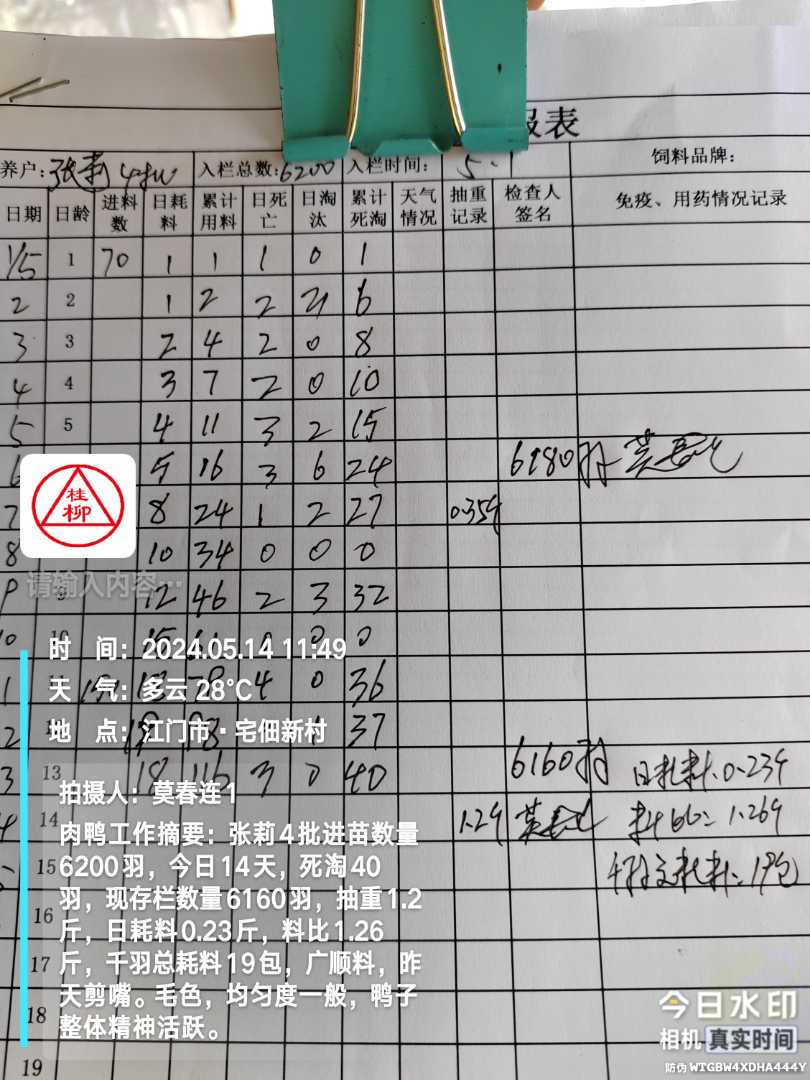 报表
养户: 张莉 4批 入栏总数: 6200 入栏时间: 5.1 饲料品牌:
日期 日龄 进料数 日耗料 累计用料 日死亡 日淘汰 累计死淘 天气情况 抽重记录 检查人签名 免疫、用药情况记录
1/5 1 70 1 1 1 0 1
2 2 1 2 2 6
3 3 2 4 2 0 8
4 4 3 7 2 0 10
5 5 4 11 3 2 15
6 5 16 3 6 24 6180羽 莫春连
7 8 24 1 2 27 0.35斤
8 10 34 0 0 0
9 9 12 46 2 3 32
10 10 15 61 0 0 0
4 0 36
1 37
3 13 18 116 3 0 40 6160羽 日耗料:0.23斤
4 14 1.2斤 莫春连 料比:1.26斤
15 千羽总耗料:19包
16
17
18
19
桂柳
请输入内容…
时 间: 2024.05.14 11:49
天 气: 多云 28℃
地 点: 江门市·宅佃新村
拍摄人: 莫春连1
肉鸭工作摘要: 张莉4批进苗数量
6200羽，今日14天，死淘40
羽，现存栏数量6160羽，抽重1.2
斤，日耗料0.23斤，料比1.26
斤，千羽总耗料19包，广顺料，昨
天剪嘴。毛色，均匀度一般，鸭子
整体精神活跃。
今日水印
相机 真实时间
防伪 WTGBW4XDHA444Y